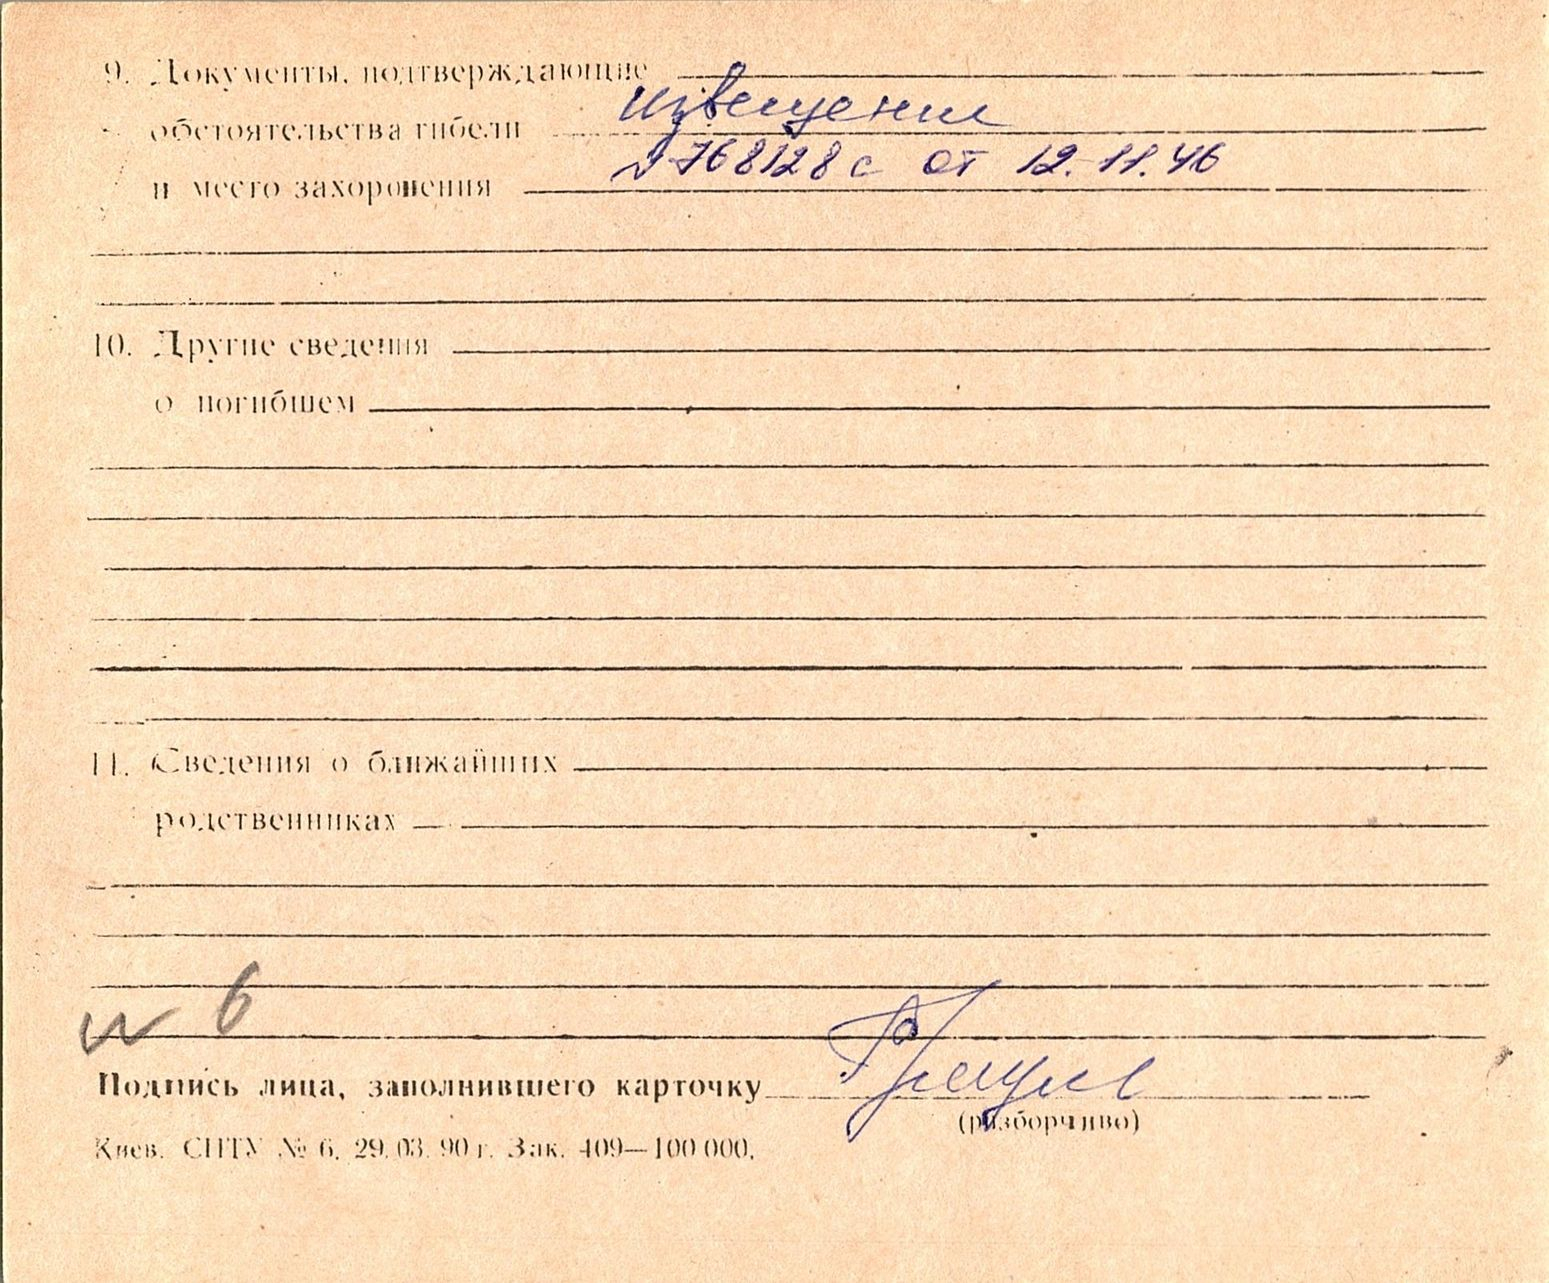 9. Документы, подтверждающие
обстоятельства гибели извещение
и место захоронения № 768128с от 12.11.46
10. Другие сведения
о погибшем
11. Сведения о ближайших
родственниках
№ 6
Подпись лица, заполнившего карточку
(разборчиво)
Киев. СПТУ № 6. 29.03.90 г. Зак. 409—100 000.